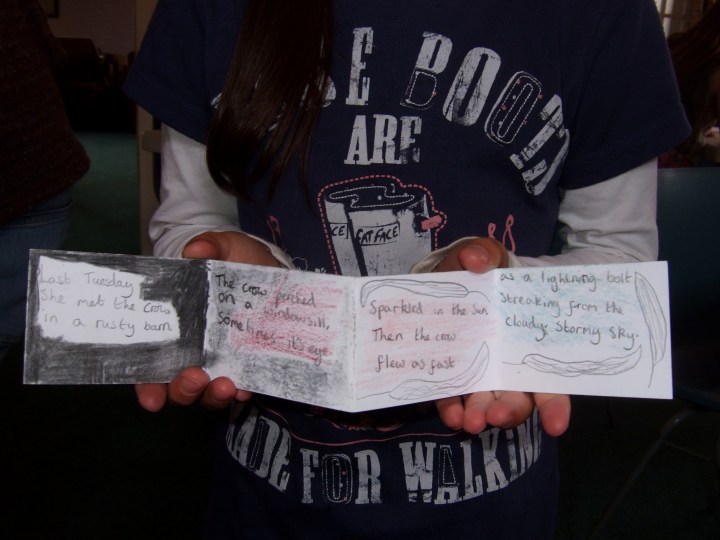 SE BOOTS
ARE
CE FAT FACE
Last Tuesday
She met the crow
in a rusty barn
The crow perched
on a windowsill,
Sometimes it's eye
Sparkled in the sun
Then the crow
flew as fast
as a lightning bolt
Streaking from the
cloudy Stormy Sky.
MADE FOR WALKIN